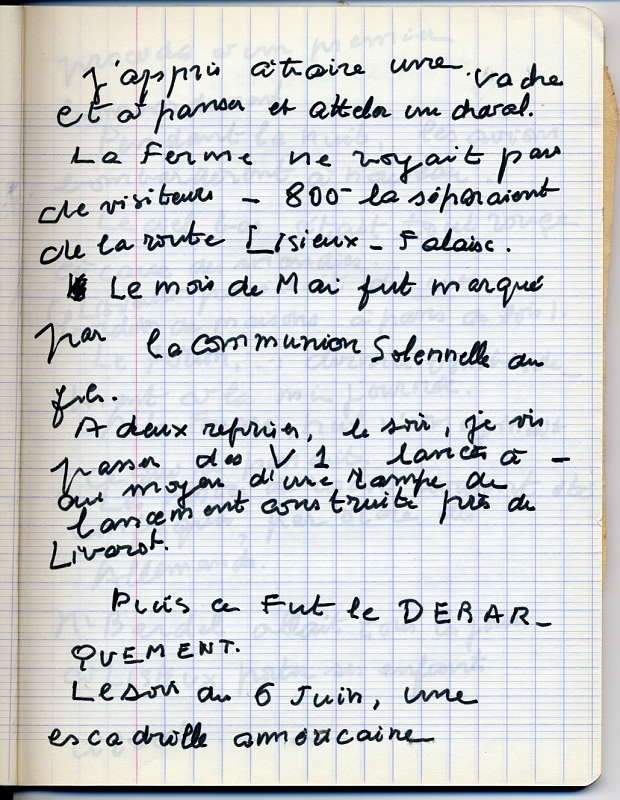 j'appris à traire une vache
et à panser et atteler un cheval.
La Ferme ne voyait pas
de visiteurs - 800- la séparaient
de la route Lisieux - Falaise.
Le mois de Mai fut marqué
par la communion Solennelle du
fils.
A deux reprises, le soir, je vis
passer des V 1 lancés à -
au moyen d'une rampe de
lancement construite près de
Livarot.
Puis ce Fut le DEBAR-
QUEMENT.
Le soir du 6 Juin, une
escadrille américaine